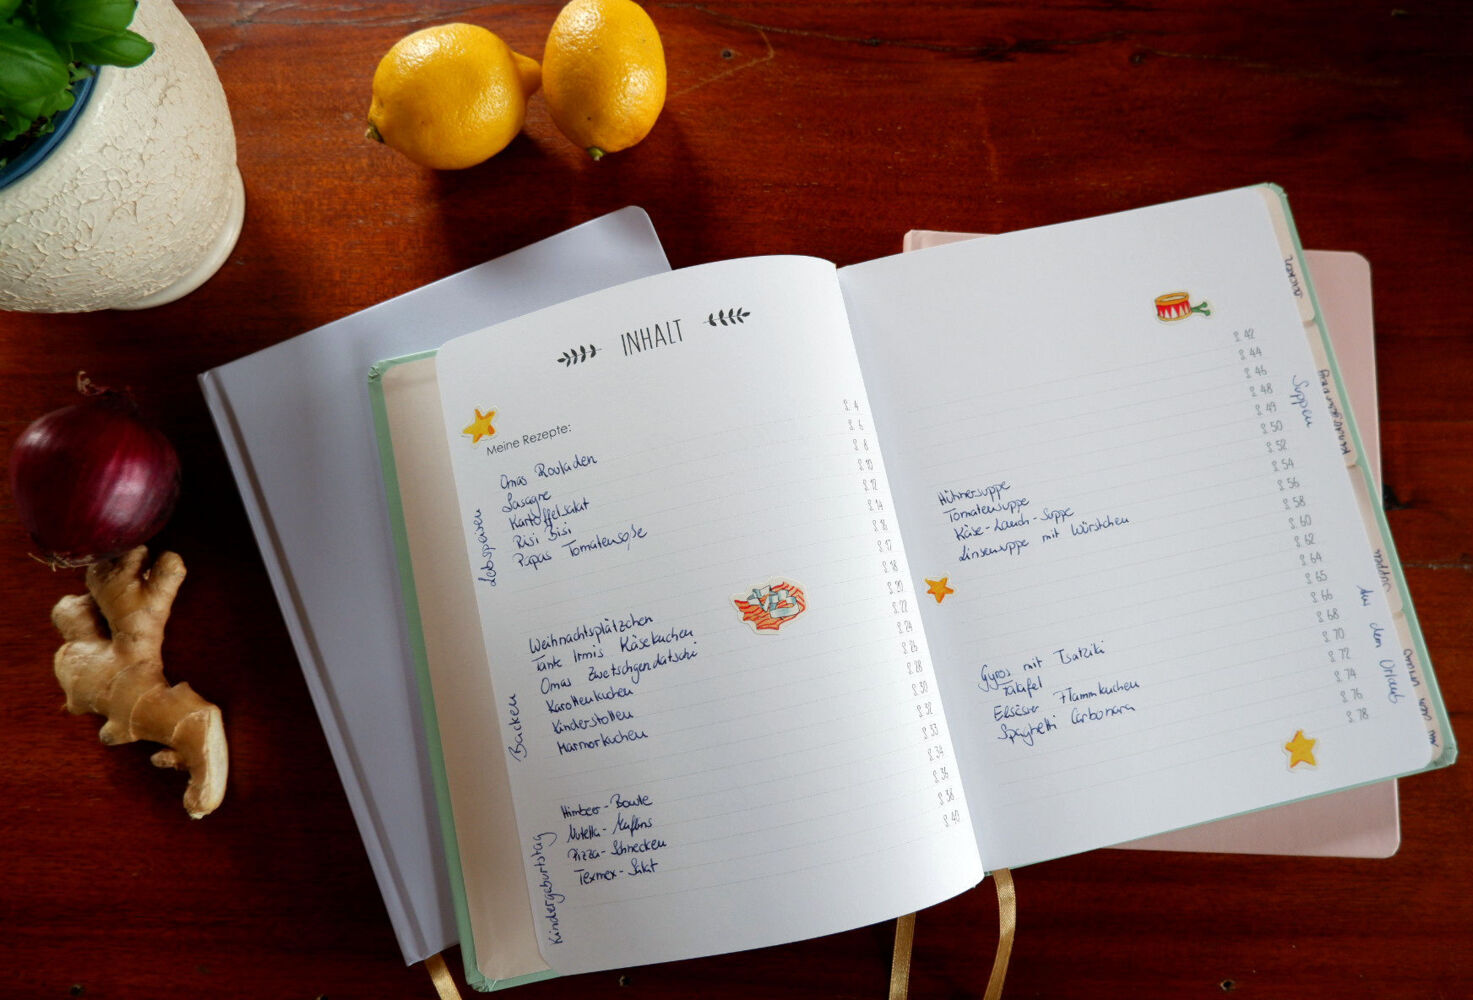 INHALT
Meine Rezepte:
Leibspeisen
Omas Rouladen
Lasagne
Kartoffelsalat
Risi Bisi
Papas Tomatensoße
Backen
Weihnachtsplätzchen
Tante Irmis Käsekuchen
Omas Zwetschgendatschi
Karottenkuchen
Kinderstollen
Marmorkuchen
Kindergeburtstag
Himbeer-Bowle
Nutella-Muffins
Pizza-Schnecken
Texmex-Salat
S. 4
S. 6
S. 8
S. 10
S. 12
S. 14
S. 16
S. 17
S. 18
S. 20
S. 22
S. 24
S. 26
S. 28
S. 30
S. 32
S. 33
S. 34
S. 36
S. 38
S. 40
Suppen
Hühnersuppe
Tomatensuppe
Käse-Lauch-Suppe
Linsensuppe mit Würstchen
Aus dem Urlaub
Gyros mit Tsatziki
Falafel
Elsässer Flammkuchen
Spaghetti Carbonara
S. 42
S. 44
S. 46
S. 48
S. 49
S. 50
S. 52
S. 54
S. 56
S. 58
S. 60
S. 62
S. 64
S. 65
S. 66
S. 68
S. 70
S. 72
S. 74
S. 76
S. 78
BACKEN
KINDERGEBURTSTAG
SUPPEN
AUS DEM URLAUB